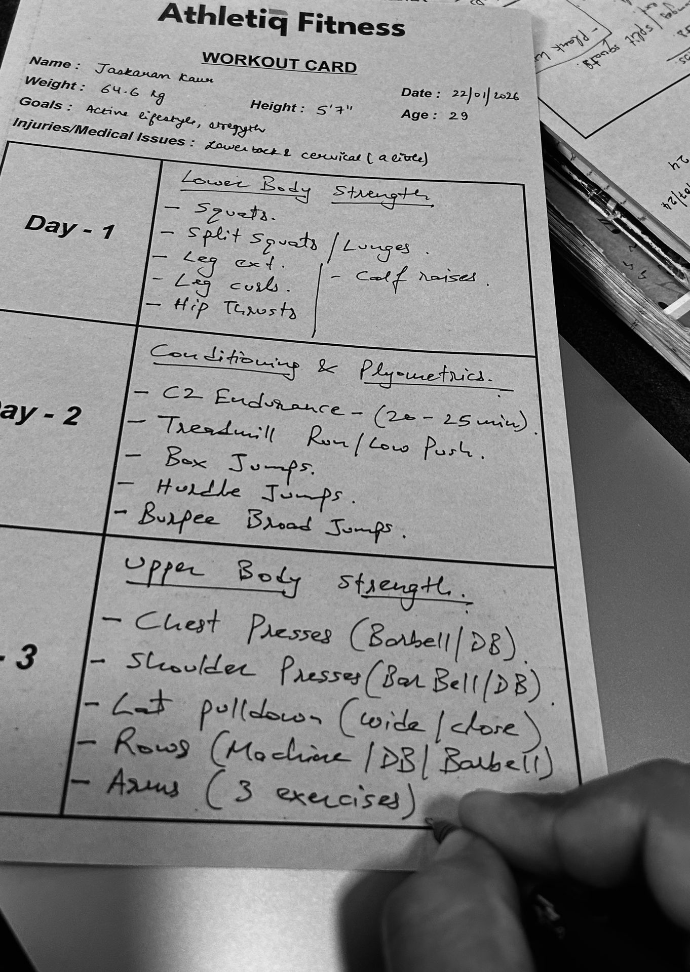 Athletiq Fitness
WORKOUT CARD
Name : Jaskaran Kaur
Weight : 64.6 kg
Height : 5'7"
Date : 22/01/2026
Goals : Active lifestyle, strength
Age : 29
Injuries/Medical Issues : Lower back & cervical (a little)
Day - 1
Lower Body Strength
- Squats.
- Split Squats / Lunges.
- Leg ext.
- Calf raises.
- Leg curls.
- Hip Thrusts
ay - 2
Conditioning & Plyometrics.
- C2 Endurance - (20 - 25 min).
- Treadmill Run / Low Push.
- Box Jumps.
- Hurdle Jumps.
- Burpee Broad Jumps.
- 3
Upper Body Strength.
- Chest Presses (Barbell / DB)
- Shoulder Presses (BarBell / DB)
- Lat pulldown (wide / close)
- Rows (Machine / DB / Barbell)
- Arms (3 exercises)
split squats.